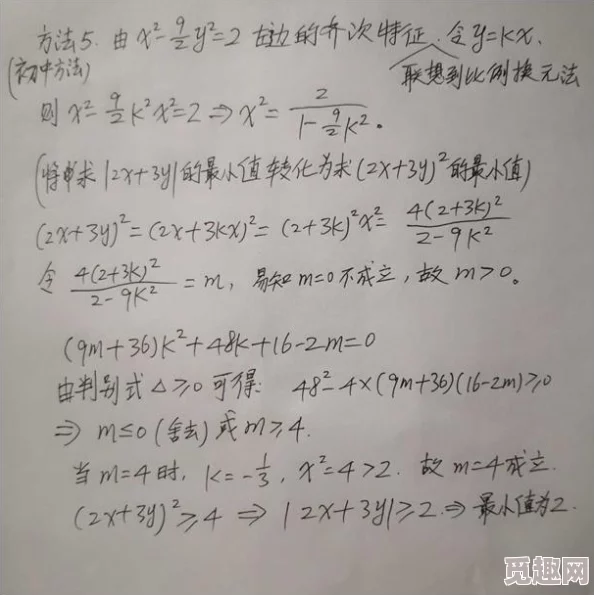 方法5. 由 x²-9/2y²=2 左边的齐次特征. 令 y=kx.
(初中方法)
联想到比例换元法
则 x²-9/2k²x²=2 ⇒ x²=2/(1-9/2k²)。
(将求|2x+3y|的最小值转化为求(2x+3y)²的最小值)
(2x+3y)²=(2x+3kx)²=(2+3k)²x²=4(2+3k)²/(2-9k²)
令 4(2+3k)²/(2-9k²)=m, 易知 m=0 不成立, 故 m>0。
(9m+36)k²+48k+16-2m=0
由判别式 Δ≥0 可得: 48²-4×(9m+36)(16-2m)≥0
⇒ m≤0 (舍去) 或 m≥4.
当 m=4 时, k=-1/3, x²=4>2. 故 m=4 成立.
(2x+3y)²≥4 ⇒ |2x+3y|≥2 ⇒ 最小值为2.
觅趣网